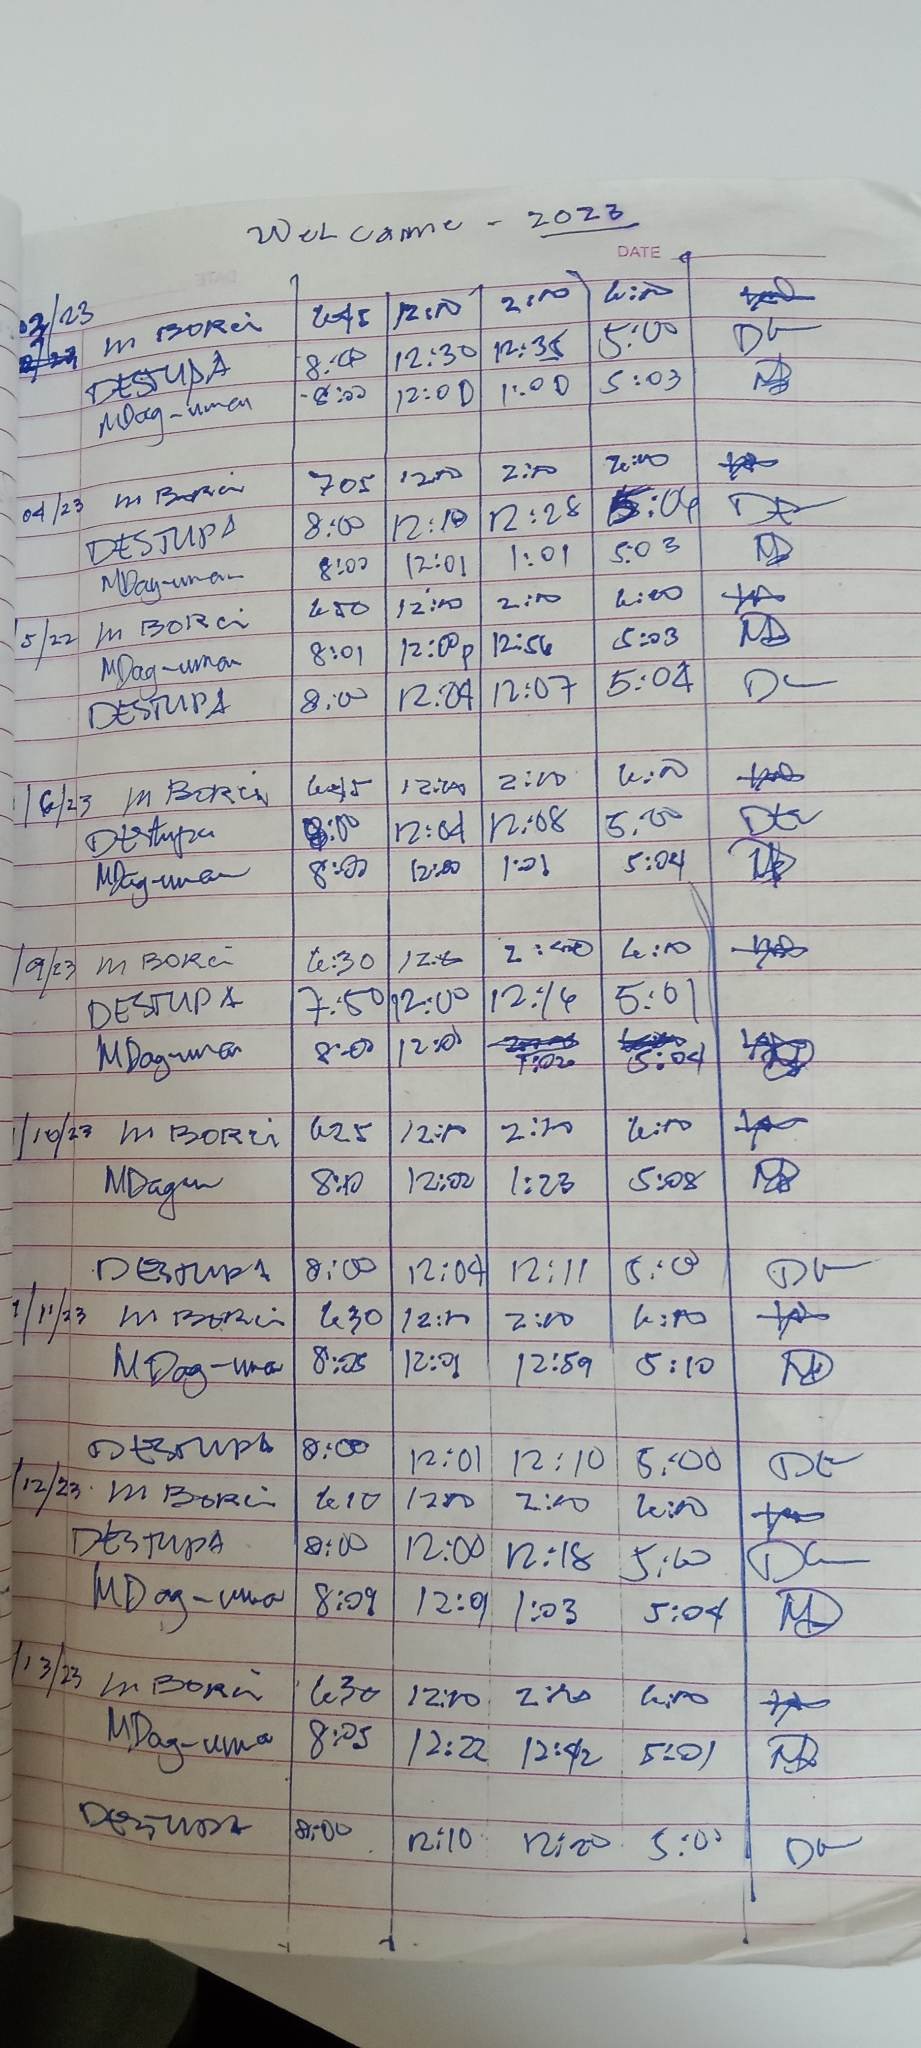 Welcame - 2023
DATE
03/23 M BORCi 645 12:00 2:00 4:00
DESTUPA 8:00 12:30 12:35 5:00
MDag-uman 8:00 12:00 1:00 5:03
04/23 M BORCi 705 12:00 2:00 4:00
DESTUPA 8:00 12:10 12:28 5:04
MDag-uman 8:00 12:01 1:01 5:03
5/22 M BORCi 650 12:00 2:00 4:00
MDag-uman 8:01 12:00p 12:56 5:03
DESTUPA 8:00 12:04 12:07 5:04
1/6/23 M BORCi 645 12:00 2:00 4:00
DEstupa 8:00 12:04 12:08 5:00
MDag-uman 8:00 12:00 1:01 5:04
1/9/23 M BORCi 6:30 2:00 4:00
DESTUPA 7:50 12:00 12:16 5:01
MDag-uman 8:00 12:01 5:04
1/10/23 M BORCi 625 12:00 2:00 4:00
MDagu 8:10 12:02 1:23 5:08
DESTUPA 8:00 12:04 12:11 5:0
1/11/23 M BORCi 630 12:00 2:00 4:00
MDag-uma 8:05 12:01 12:59 5:10
DESTUPA 8:00 12:01 12:10 5:00
/12/23 M BORCi 610 1200 2:00 4:00
DESTUPA 8:00 12:00 12:18 5:00
MDag-uma 8:09 12:01 1:03 5:04
/13/23 M BORCi 630 12:00 2:00 4:00
MDag-uma 8:05 12:22 12:42 5:01
DESTUPA 8:00 12:10 12:20 5:00